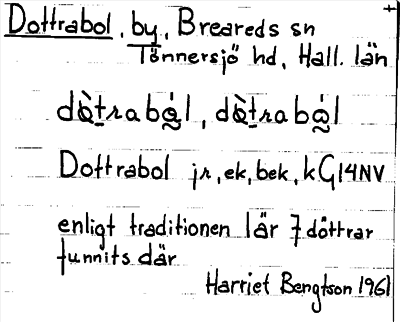 Dottrabol, by, Breareds sn
Tönnersjö hd, Hall. län
Dottrabol jr, ek, bek, kG14NV
enligt traditionen lär 7 döttrar
funnits där
Harriet Bengtson 1961